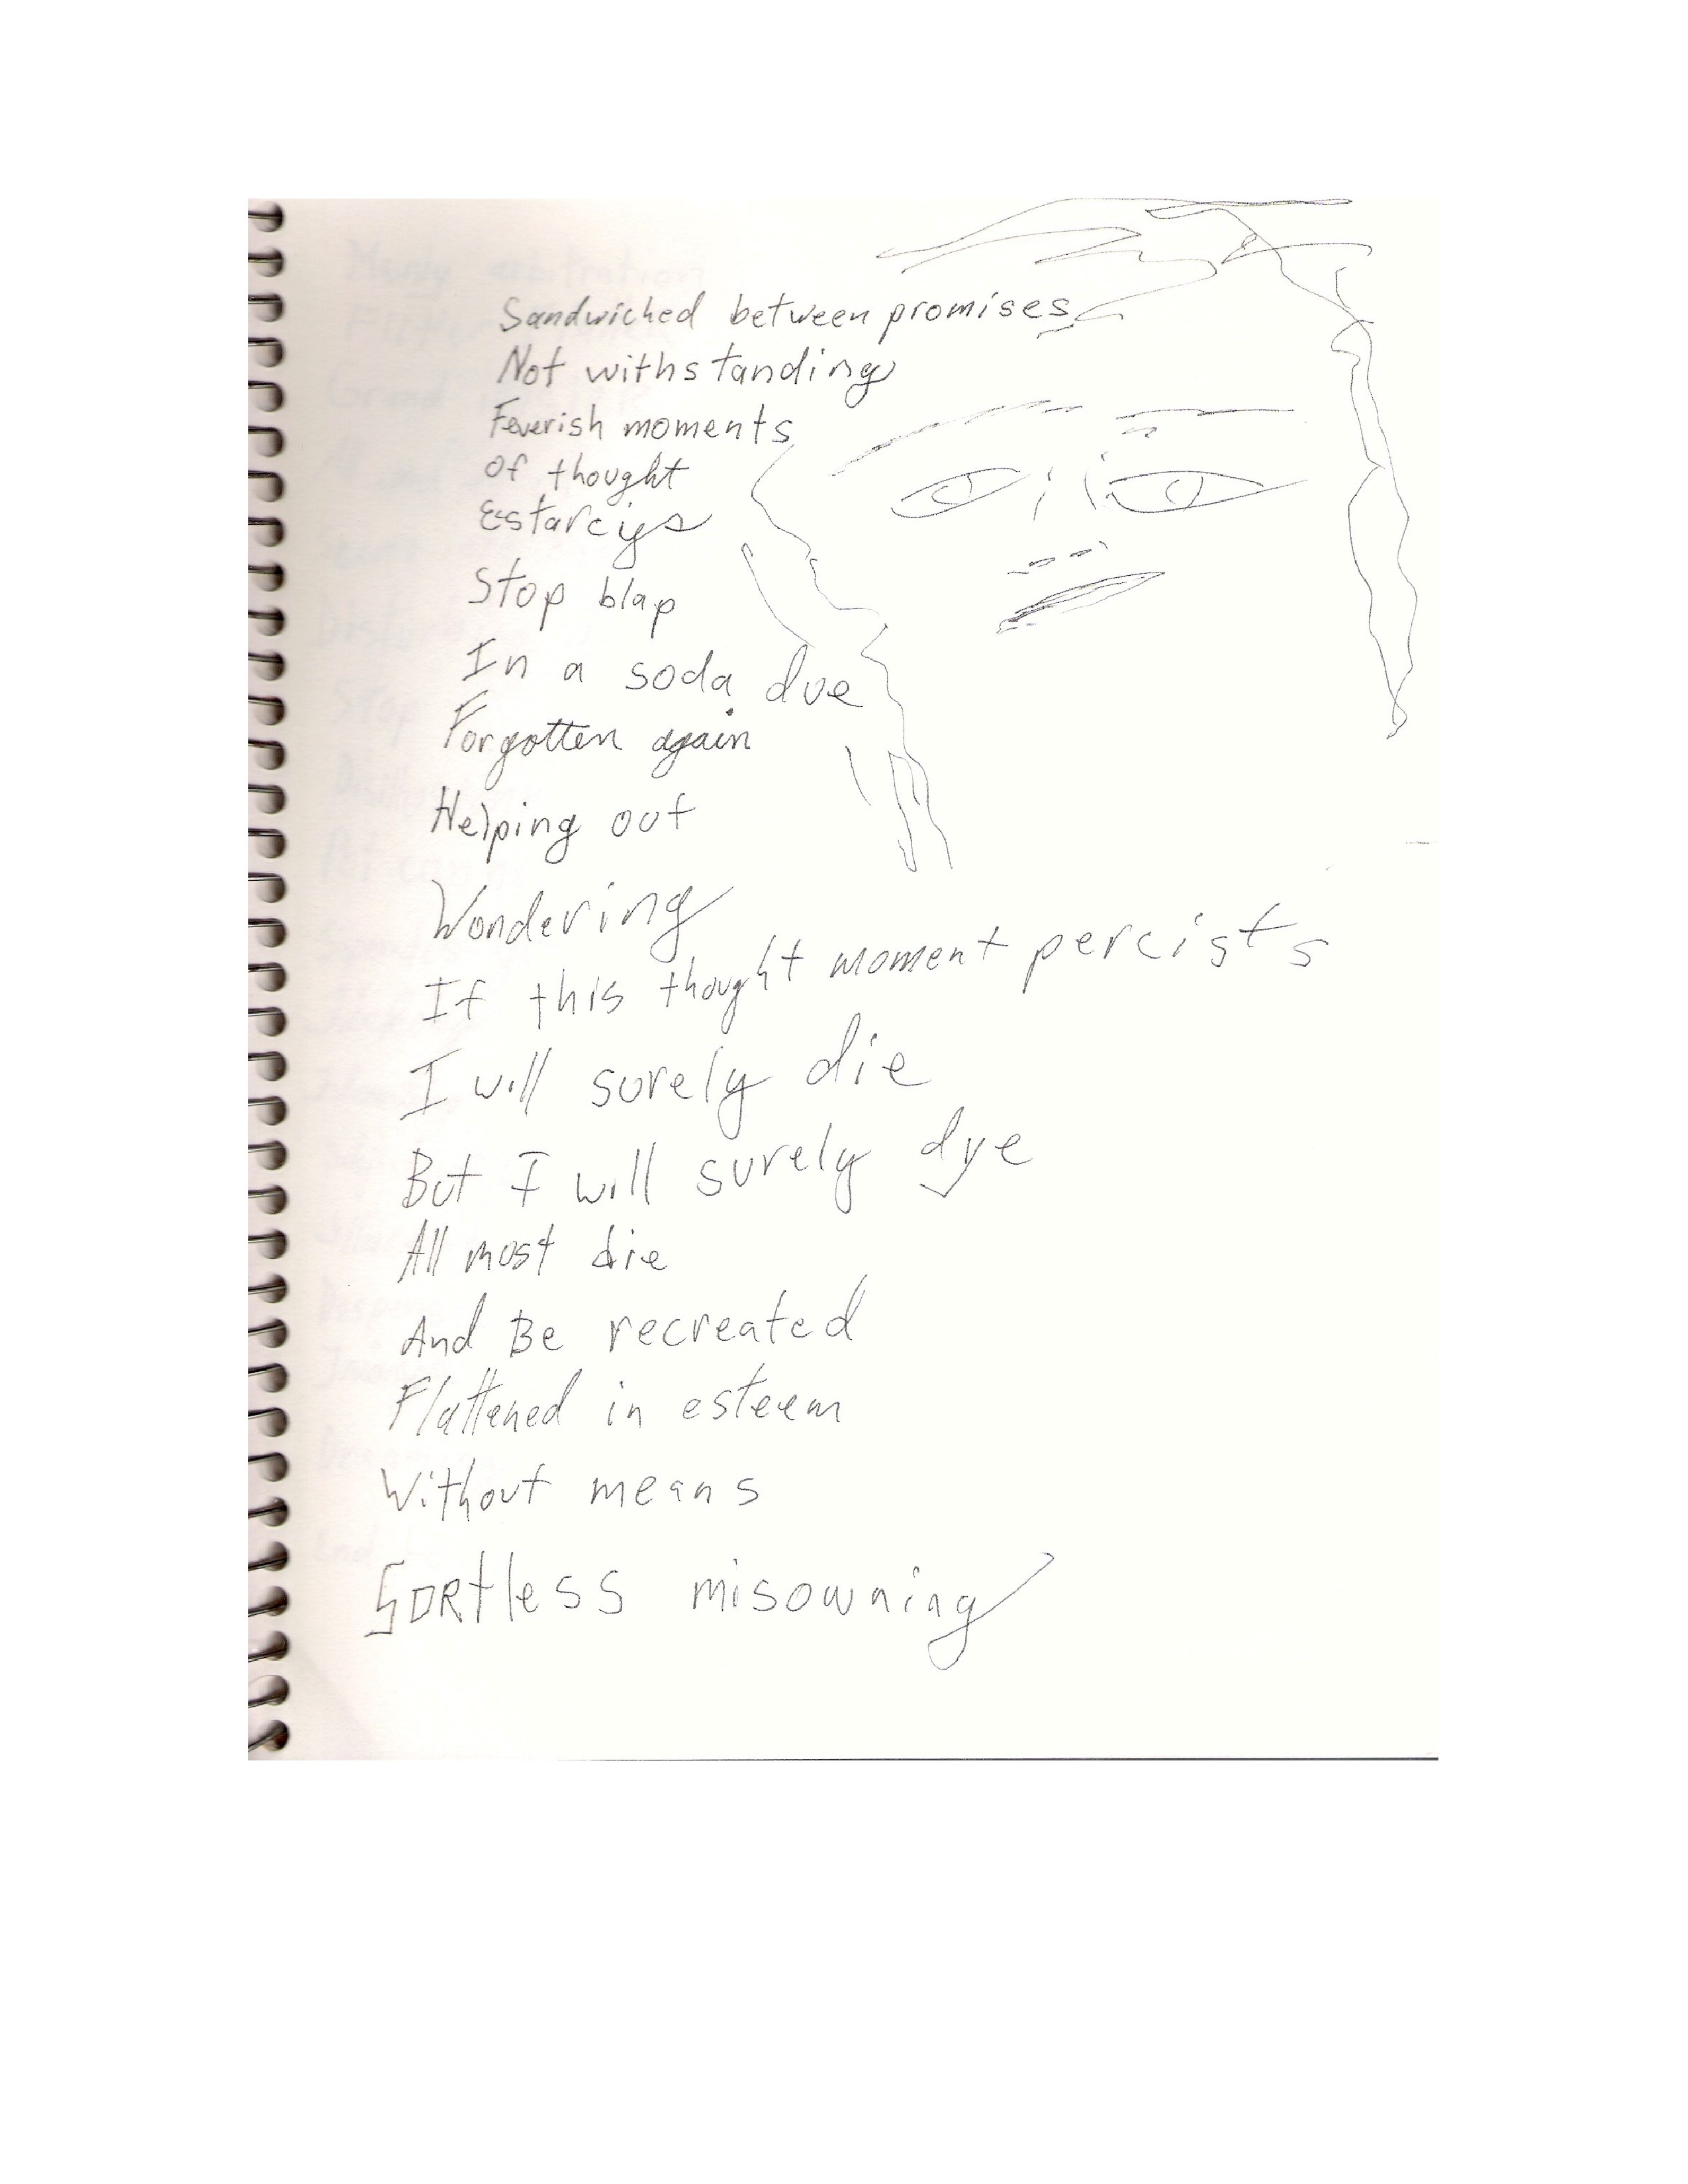 Sandwiched between promises
Not withstanding
Feverish moments
of thought
Estarcys
Stop blap
In a soda due
Forgotten again
Helping out
Wondering
If this thought moment percists
I will surely die
But I will surely dye
All most die
And Be recreated
Flattened in esteem
Without means
SORtless misowning